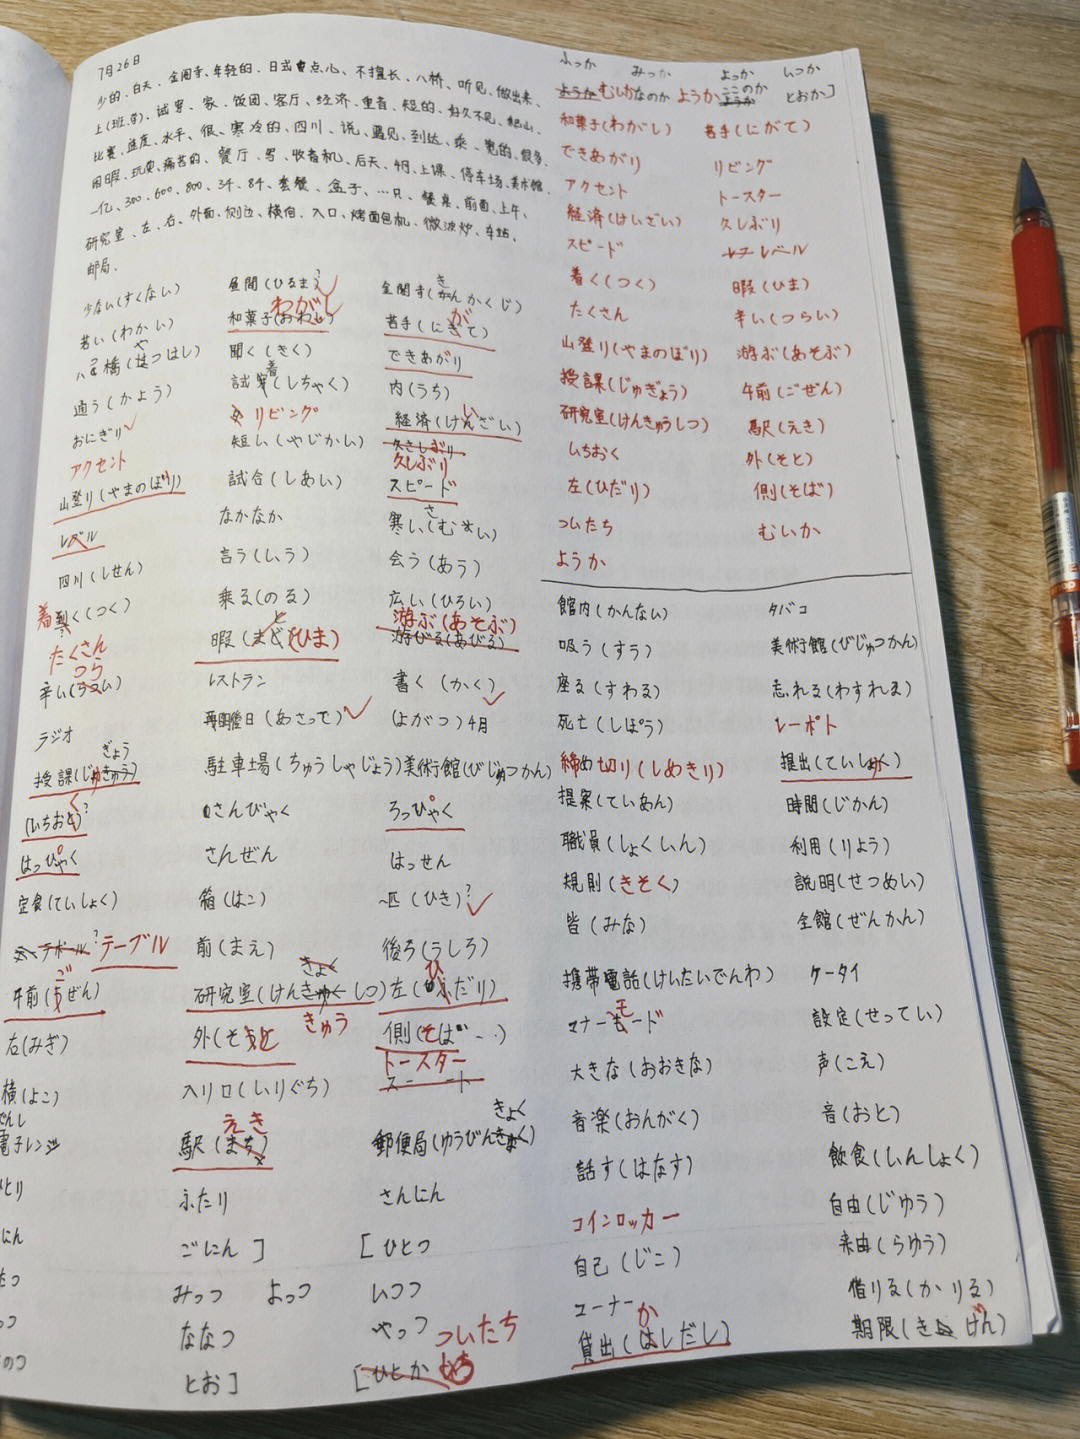 7月26日
少的、白天、金阁寺、年轻的、日式点心、不擅长、八桥、听见、做出来、
上(班、学)、试穿、家、饭团、客厅、经济、重音、短的、好久不见、爬山、
比赛、速度、水平、很、寒冷的、四川、说、遇见、到达、乘、宽的、很多、
闲暇、玩耍、痛苦的、餐厅、写、收音机、后天、4月、上课、停车场、美术馆、
一亿、300、600、800、3千、8千、套餐、盒子、…只、餐桌、前面、上午、
研究室、左、右、外面、侧边、横向、入口、烤面包机、微波炉、车站、
邮局、
少ない(すくない) 昼間(ひるま)? 金閣寺(きんかくじ)
わがし
若い(わかい) 和菓子(おわし) 苦手(にがて)
八つ橋(やつはし) 聞く(きく) できあがり
通う(かよう) 試着(しちゃく) 内(うち)
おにぎり リビング 経済(けいざい)
アクセント 短い(みじかい) 久さしぶり
久しぶり
山登り(やまのぼり) 試合(しあい) スピード
レベル なかなか 寒い(さむい)
四川(しせん) 言う(いう) 会う(あう)
着く(つく) 乗る(のる) 広い(ひろい)
たくさん 暇(まど)(ひま) 游ぶ(あそぶ)
游びる(あびる)
つら
辛い(ろつい) レストラン 書く(かく)
ラジオ 明後日(あさって) (よがつ)4月
ぎょう
授課(じゅきゅう) 駐車場(ちゅうしゃじょう) 美術館(びじゅつかん)
(いちおく)? さんびゃく ろっぴゃく
はっぴゃく さんぜん はっせん
定食(ていしょく) 箱(はこ) ~匹(ひき)?
テーブル 前(まえ) 後ろ(うしろ)
午前(ごぜん) 研究室(けんきゅうしつ) 左(ひだり)
右(みぎ) 外(そと) 側(そば…)
トースター
横(よこ) 入り口(いりぐち)
でんし
電子レンジ 駅(えき) 郵便局(ゆうびんきょく)
とり ふたり さんにん
にん ごにん] [ひとつ
みっつ よっつ いつつ
ななつ やっつ ついたち
のつ とお] [ひとか
ふつか みっか よっか いつか
ようか むいか なのか ようか ここのか とおか]
和菓子(わがし) 苦手(にがて)
できあがり リビング
アクセント トースター
経済(けいざい) 久しぶり
スピード レベル
着く(つく) 暇(ひま)
たくさん 辛い(つらい)
山登り(やまのぼり) 游ぶ(あそぶ)
授課(じゅぎょう) 午前(ごぜん)
研究室(けんきゅうしつ) 駅(えき)
いちおく 外(そと)
左(ひだり) 側(そば)
ついたち むいか
ようか
館内(かんない) タバコ
吸う(すう) 美術館(びじゅつかん)
座る(すわる) 忘れる(わすれま)
死亡(しぼう) レーポト
締め切り(しめきり) 提出(ていしゅつ)
提案(ていあん) 時間(じかん)
職員(しょくいん) 利用(りよう)
規則(きそく) 説明(せつめい)
皆(みな) 全館(ぜんかん)
携帯電話(けいたいでんわ) ケータイ
マナーモード 設定(せってい)
大きな(おおきな) 声(こえ)
音楽(おんがく) 音(おと)
話す(はなす) 飲食(いんしょく)
コインロッカー 自由(じゆう)
自己(じこ) 来由(らゆう)
コーナー 借りる(かりる)
貸出(かしだし) 期限(きげん)